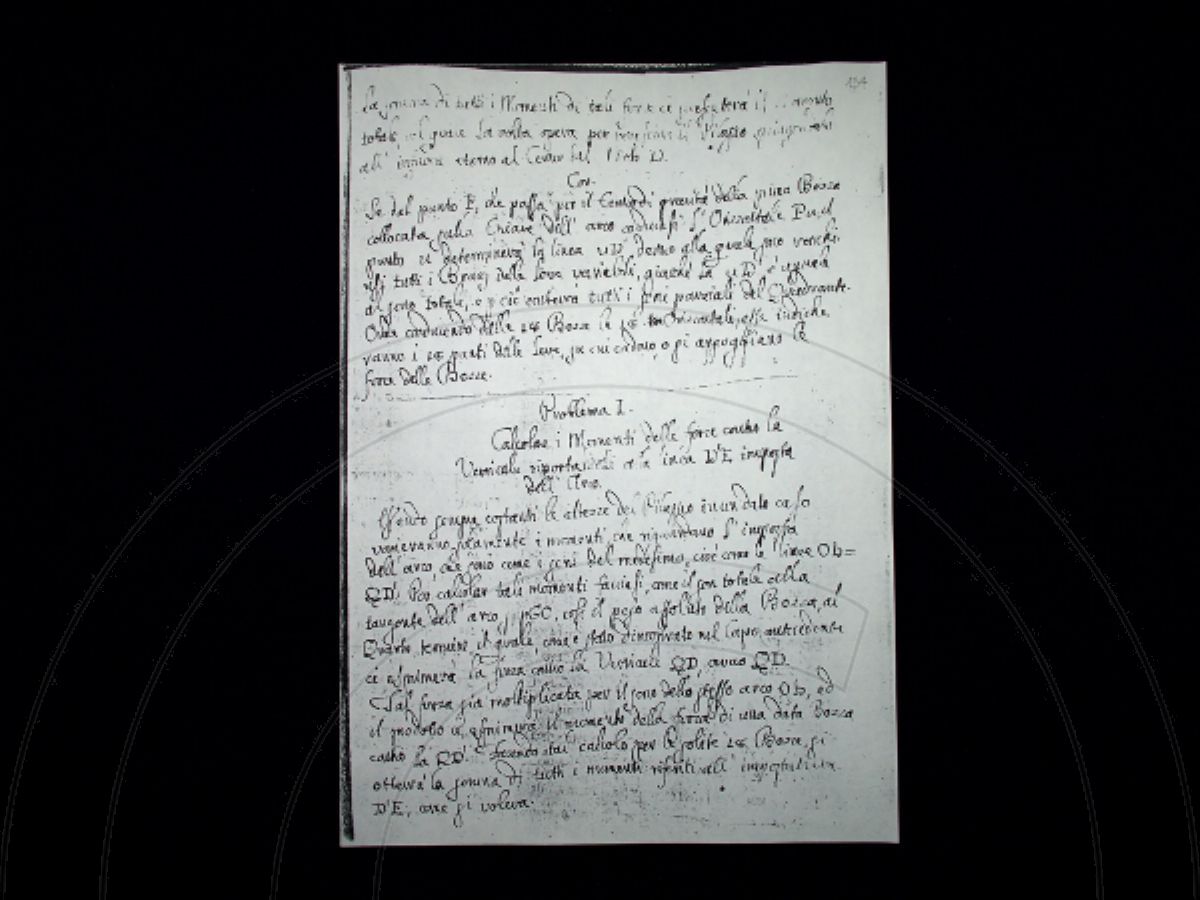 134
la somma di tutti i Momenti di tali forze ci presenterà il Momento
totale, col quale la volta opera per
all' esterno al
Cor.
Se dal punto E, che passa per il Centro di gravità della prima Bozza
collocata sulla Chiave dell' arco conducasi l' Orizzontale Pu, il
punto u determinerà la linea uD' dentro alla quale sono
tutti i Bracci della Leva variabili, giacché la uD' è uguale
al seno totale, e p ciò conterrà tutti i seni parziali del Quadrante.
Onde conducendo dalle 24 Bozze le 24 Orizzontali, esse indiche
ranno i 24 punti delle Leve, su cui cadono, o si appoggiano le
forze delle Bozze.
Problema I.
Calcolar i Momenti delle forze contro la
Verticale riportandoli alla linea D'E imposta
dell' Arco.
Essendo sempre costanti le altezze del in un dato caso
varieranno solamente i momenti, che riguardano l' imposta
dell' arco, che sono come i seni del medesimo, cioè come le linee Ob=
QD'. Per calcolar tali momenti facciasi, come il sen totale alla
tangente dell' arco, così il peso assoluto della Bozza, al
Quarto termine, il quale, come è stato dimostrato nel Capo antecedente
ci esprimerà la forza contro la Verticale QD, ovvero QD.
Tal forza sia moltiplicata per il seno dello stesso arco Ob, ed
il prodotto ci esprimerà il momento della forza di una data Bozza
contro la QD'. E facendo tal calcolo per le solite 24 Bozze, si
otterrà la somma di tutti i momenti riferiti all'
D'E, come si voleva.